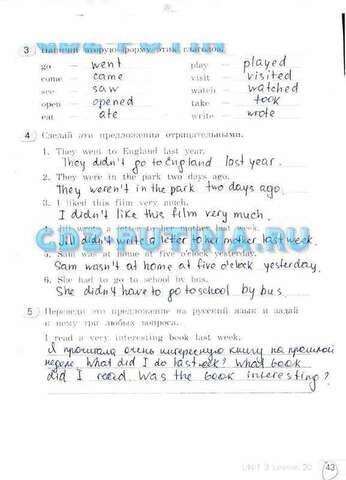 3 Напиши вторую форму этих глаголов.
go — went play — played
come — came visit — visited
see — saw watch — watched
open — opened take — took
eat — ate write — wrote
4 Сделай эти предложения отрицательными.
1. They went to England last year.
They didn't go to England last year.
2. They were in the park two days ago.
They weren't in the park two days ago.
3. I liked this film very much.
I didn't like this film very much.
GDZ-PUTINA.RU
Jill didn't write a letter to her mother last week.
5. Sam was at home at five o'clock yesterday.
Sam wasn't at home at five o'clock yesterday.
6. She had to go to school by bus.
She didn't have to go to school by bus.
5 Переведи это предложение на русский язык и задай
к нему три любых вопроса.
I read a very interesting book last week.
Я прочитала очень интересную книгу на прошлой
неделе. What did I do last week? What book
did I read. Was the book interesting?
UNIT 3 Lesson 20 43